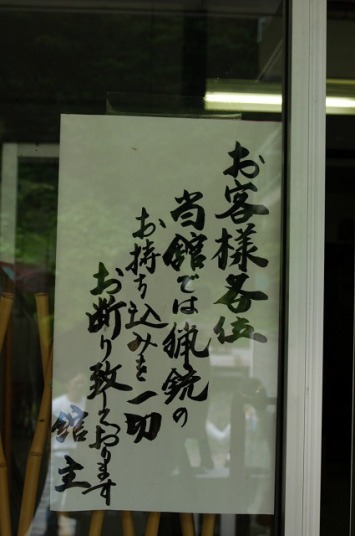 お客様各位
当館では猟銃の
お持ち込みを一切
お断り致しております
館主